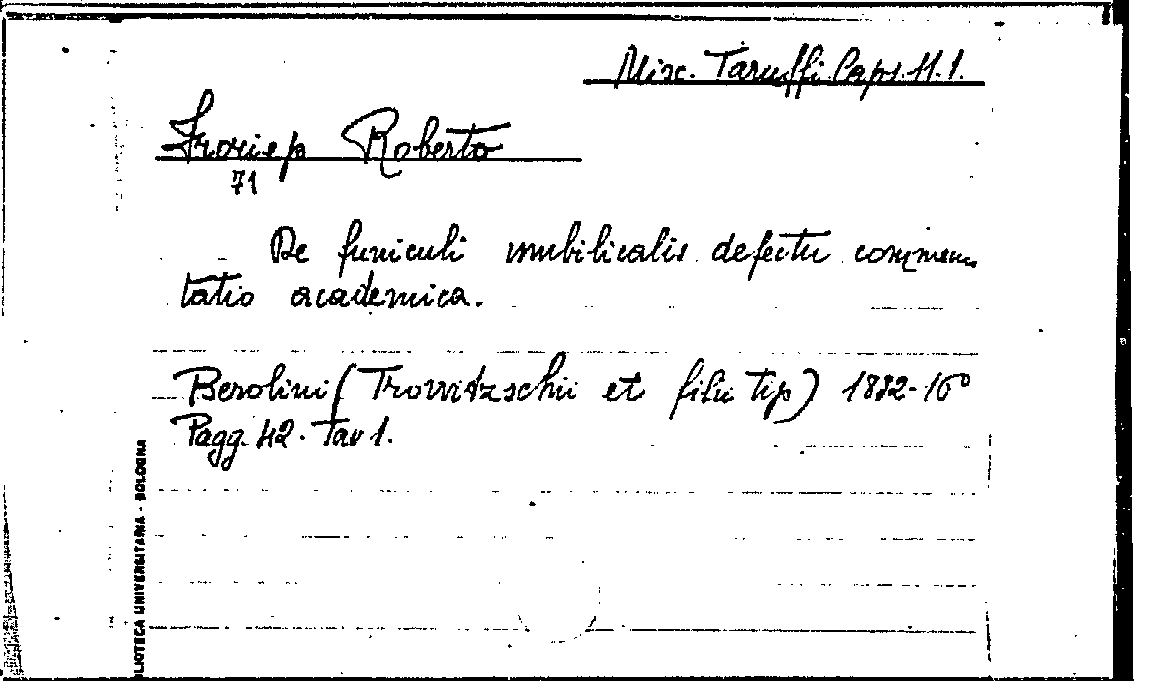 Misc. Taruffi Caps. 11. 1.
Froriep Roberto
71
De funiculi umbilicalis defectu commen
tatio academica.
Berolini (Trowitzschii et filii tip) 1832-16°
Pagg. 42. Tav 1.
BLIOTECA UNIVERSITARIA - BOLOGNA